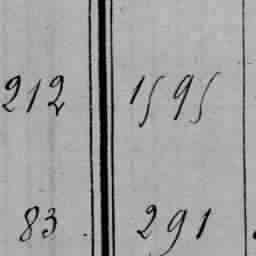 212 1595
83 291